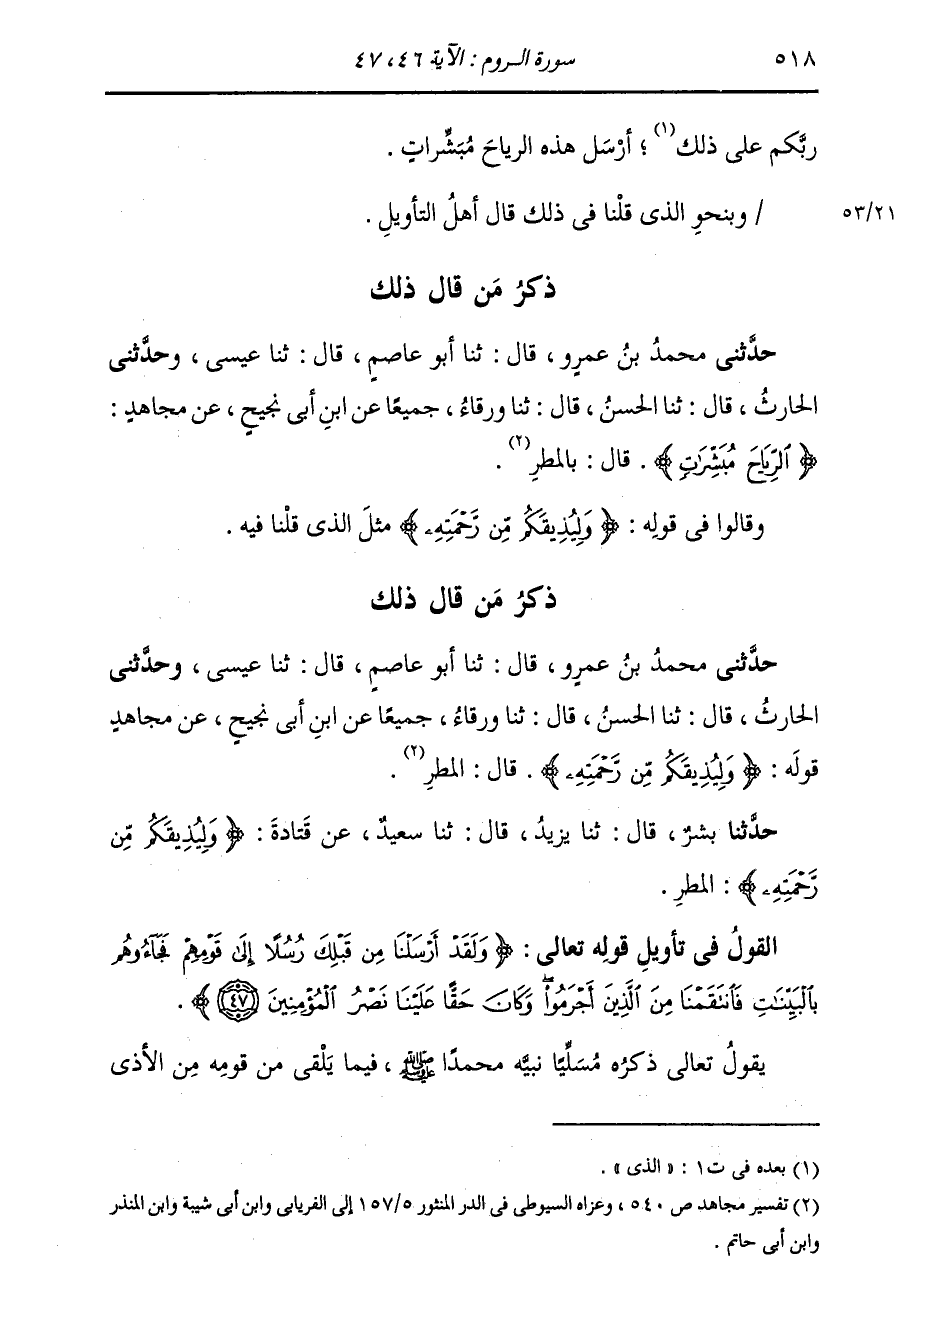 ٥١٨ سورة الروم : الآية ٤٦ ، ٤٧
ربَّكم على ذلك(١) ؛ أرْسَل هذه الرياحَ مُبَشِّراتٍ .
٥٣/٢١ / وبنحوِ الذى قلْنا فى ذلك قال أهلُ التأويلِ .
ذكرُ مَن قال ذلك
حدَّثنى محمدُ بنُ عمرٍو ، قال : ثنا أبو عاصمٍ ، قال : ثنا عيسى ، وحدَّثنى
الحارثُ ، قال : ثنا الحسنُ ، قال : ثنا ورقاءُ ، جميعًا عن ابنِ أبى نجيحٍ ، عن مجاهدٍ :
﴿ ٱلرِّيَاحَ مُبَشِّرَٰتٍ ﴾ . قال : بالمطرِ(٢) .
وقالوا فى قولِه : ﴿ وَلِيُذِيقَكُم مِّن رَّحْمَتِهِۦ ﴾ مثلَ الذى قلْنا فيه .
ذكرُ مَن قال ذلك
حدَّثنى محمدُ بنُ عمرٍو ، قال : ثنا أبو عاصمٍ ، قال : ثنا عيسى ، وحدَّثنى
الحارثُ ، قال : ثنا الحسنُ ، قال : ثنا ورقاءُ ، جميعًا عن ابنِ أبى نجيحٍ ، عن مجاهدٍ
قولَه : ﴿ وَلِيُذِيقَكُم مِّن رَّحْمَتِهِۦ ﴾ . قال : المطرِ(٢) .
حدَّثنا بشرٌ ، قال : ثنا يزيدُ ، قال : ثنا سعيدٌ ، عن قَتادةَ : ﴿ وَلِيُذِيقَكُم مِّن
رَّحْمَتِهِۦ ﴾ : المطرِ .
القولُ فى تأويلِ قولِه تعالى : ﴿ وَلَقَدْ أَرْسَلْنَا مِن قَبْلِكَ رُسُلًا إِلَىٰ قَوْمِهِمْ فَجَآءُوهُم
بِٱلْبَيِّنَٰتِ فَٱنتَقَمْنَا مِنَ ٱلَّذِينَ أَجْرَمُوا۟ ۖ وَكَانَ حَقًّا عَلَيْنَا نَصْرُ ٱلْمُؤْمِنِينَ ٤٧ ﴾ .
يقولُ تعالى ذكرُه مُسَلِّيًا نبيَّه محمدًا ﷺ ، فيما يَلْقى من قومِه مِن الأذى
(١) بعده فى ت١ : « الذى » .
(٢) تفسير مجاهد ص ٥٤٠ ، وعزاه السيوطى فى الدر المنثور ١٥٧/٥ إلى الفريابى وابن أبى شيبة وابن المنذر
وابن أبى حاتم .